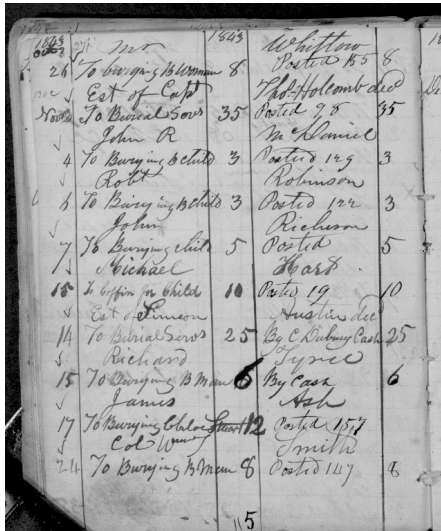 1843 Mr 1843 Whittow
26 To burying B Woman 8 Posted 155 8
Est of Capt Tho. Holcomb decd
Nov 2 To Burial Servs 35 Posted 98 35
John R McDaniel
4 To Burying B child 3 Posted 129 3
Robt Robinson
6 To Burying B child 3 Posted 122 3
John Richeson
7 To Burying child 5 Posted 5
Michael Hart
15 To Coffin for Child 10 Posted 19 10
Est of Simeon Austin decd
14 To Burial Servs 25 By C Dabney Cash 25
Richard Tyree
15 To Burying B Man 6 By Cash 6
James Ash
17 To Burying Chloe Stuart 12 Posted 157
Col Wm Smith
24 To Burying B Man 8 Posted 147 8
115